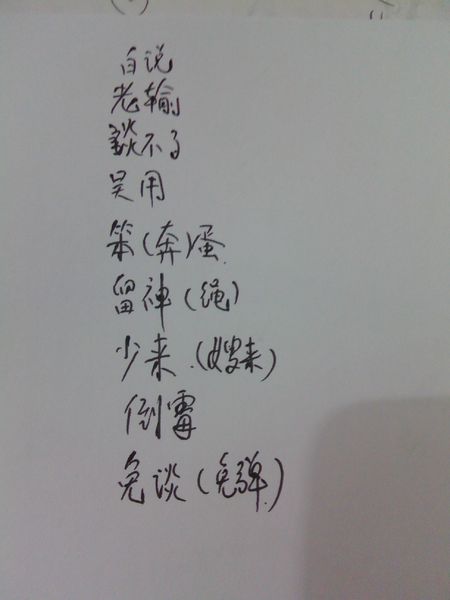 白说
老输
谈不了
吴用
笨(奔)蛋
留神(绳)
少来(嫂来)
倒霉
免谈(免弹)